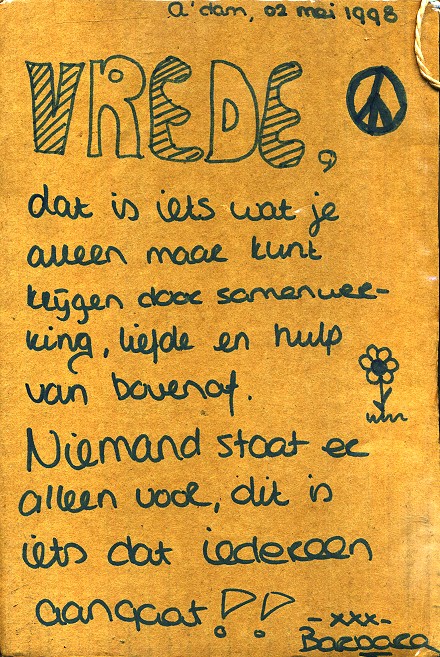 A'dam, 02 mei 1998
VREDE,
dat is iets wat je
alleen maar kunt
krijgen door samenwer-
king, liefde en hulp
van bovenaf.
Niemand staat er
alleen voor, dit is
iets dat iedereen
aangaat!!
-xxx-
Barbara